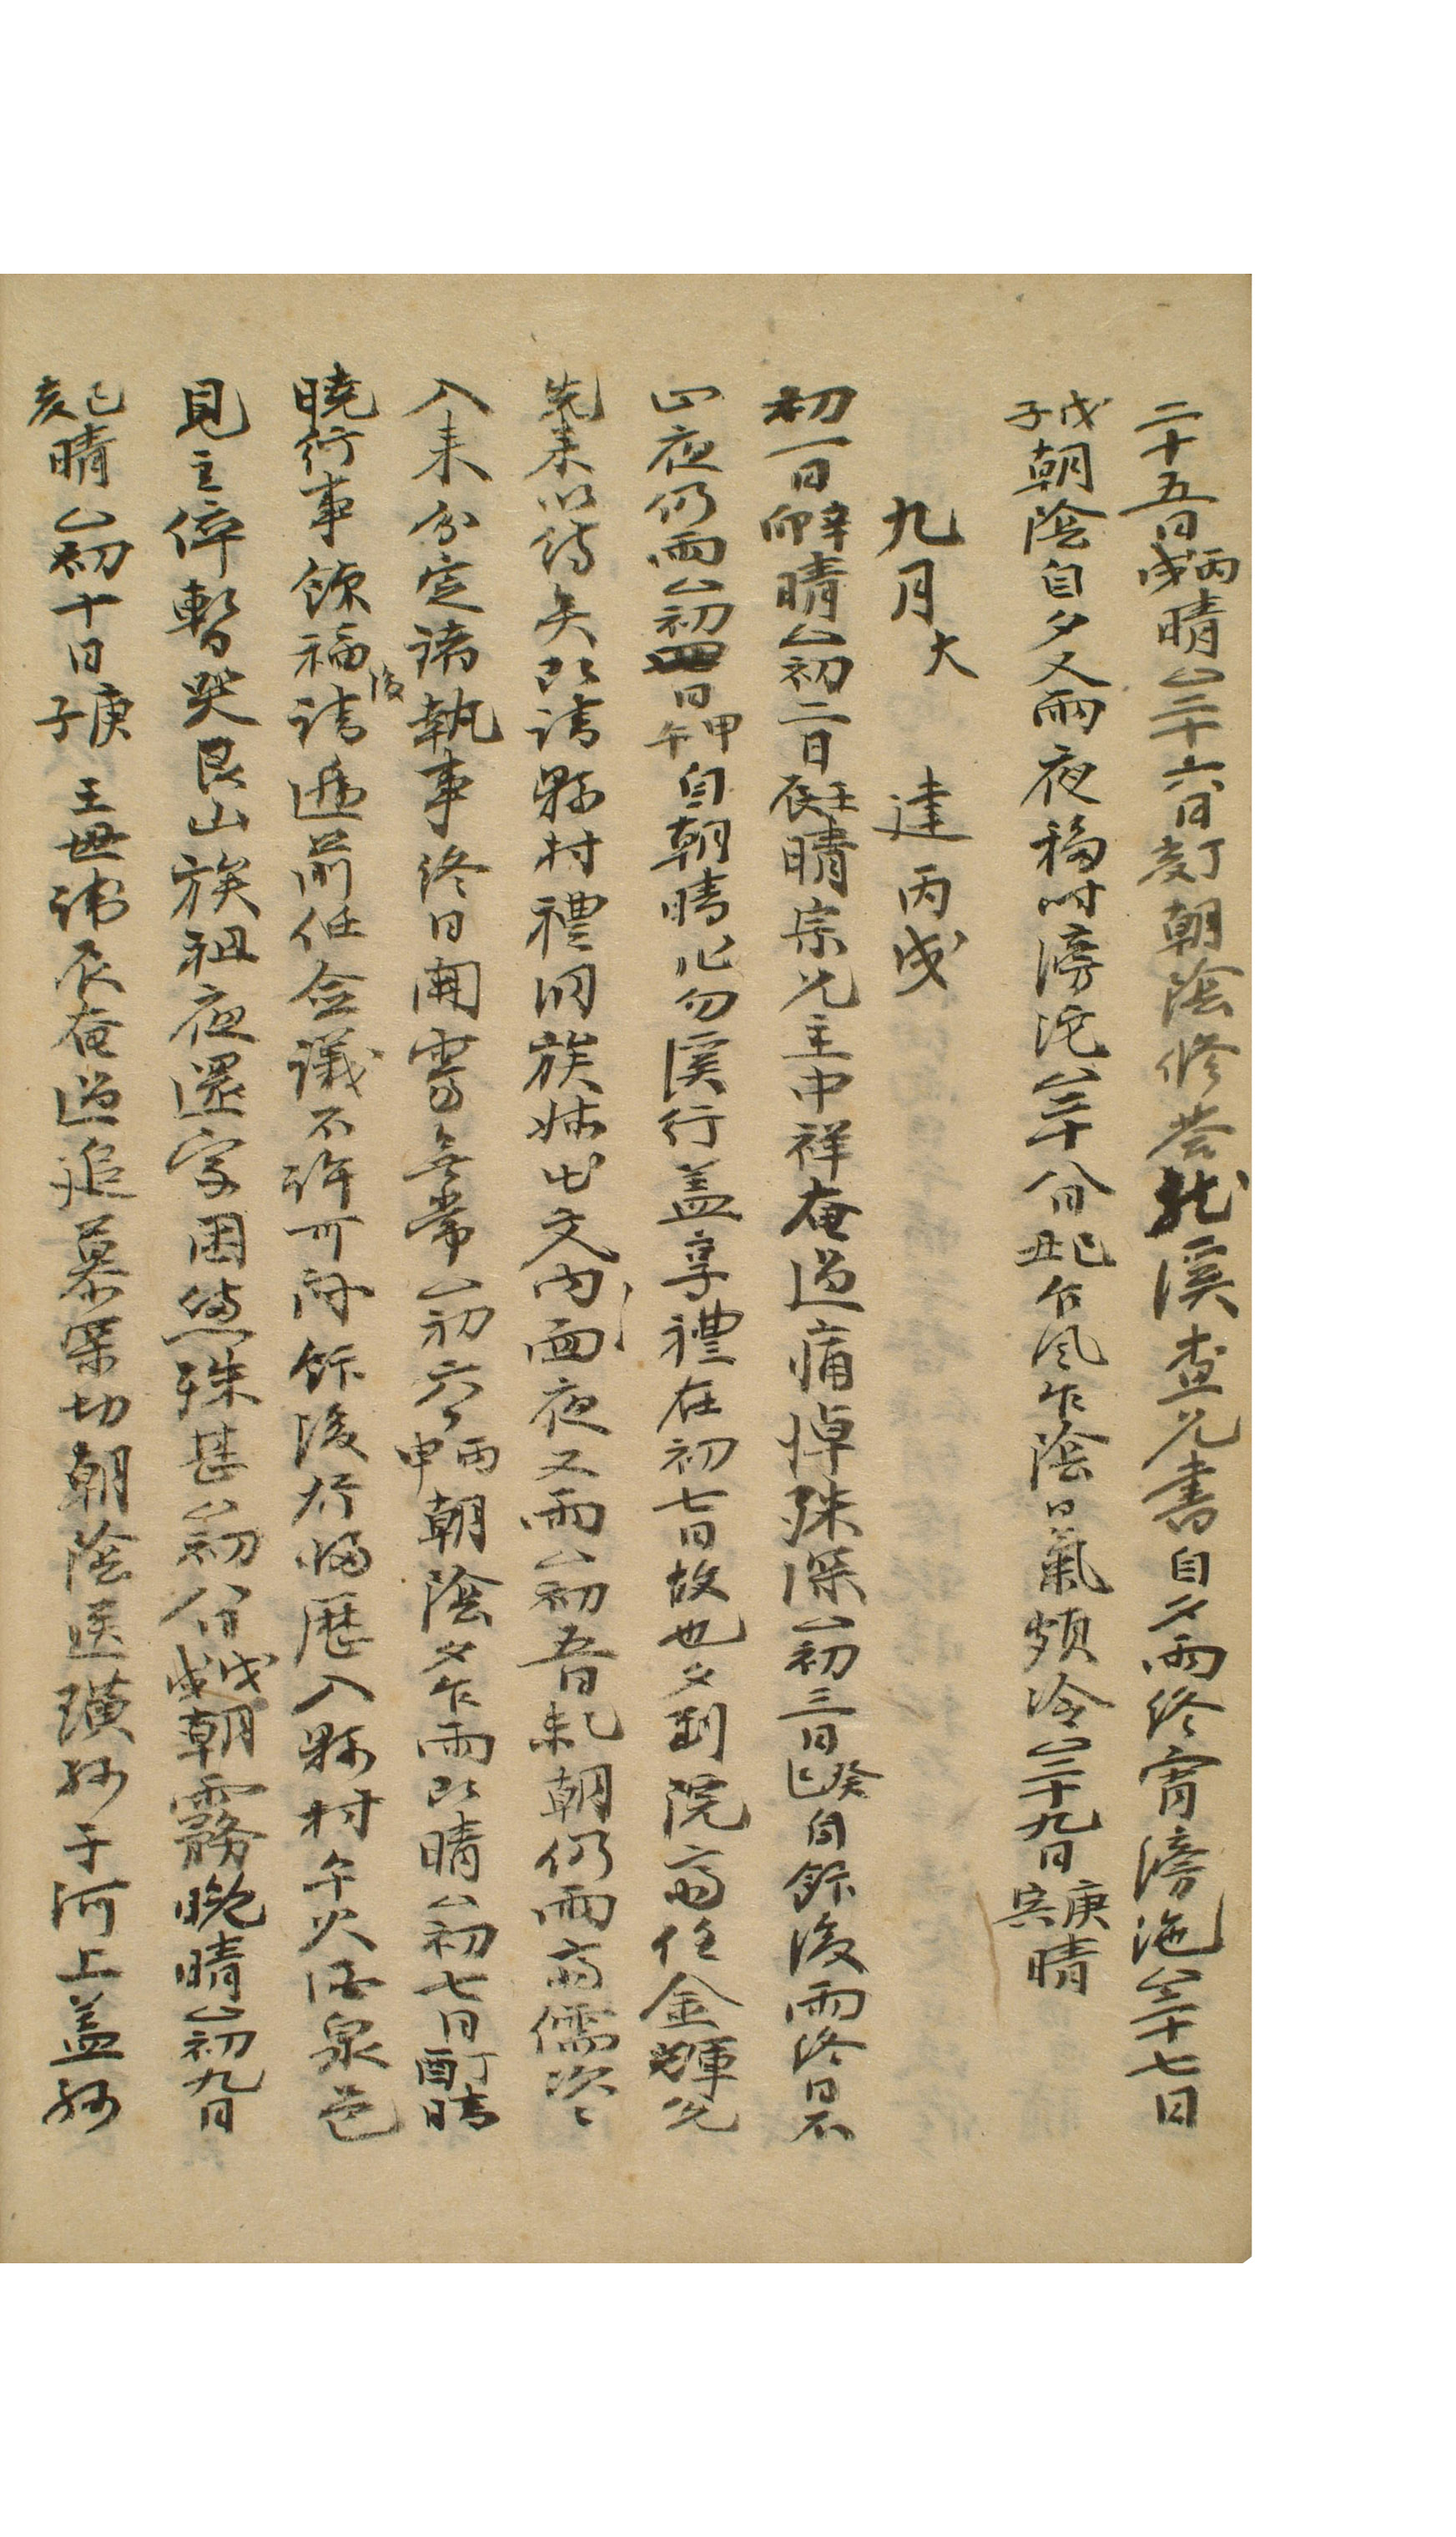 二十五日丙戌晴△二十六日丁亥朝陰修答訑溪査兄書自夕雨終宵滂沱△二十七日
戊子朝陰自夕又雨夜稱時滂沱△二十八日己丑合風乍陰日氣頗冷△二十九日庚寅晴
九月大 建丙戌
初一日辛卯晴△初二日壬辰晴宗兄主中祥奄過痛悼殊深△初三日癸巳自飯後雨終日不
止夜仍雨△初四日甲午自朝晴作勿溪行盖享禮在初七日故也夕到院齋任金輝先
先来以待矣以請縣村禮洞族姊出文内面夜又雨△初五日乙未朝仍雨齋儒冷冷
入来分定諸執事終日開霽無常△初六日丙申朝陰夕乍雨以晴△初七日丁酉晴
曉行事餕福後請遞前任僉議不許可斎飯後行歸歷入縣村午火酒泉邑
見主倅暫哭艮山族祖夜還家困憊殊甚△初八日戊戌朝霧晚晴△初九日
己亥晴△初十日庚子 王世諱辰奄過追慕冞切朝陰送璜姪于河上盖姪